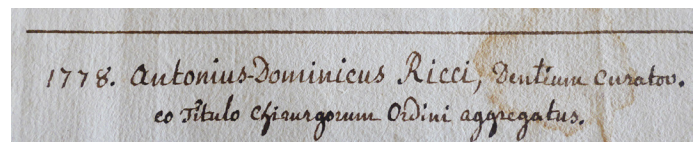 1778. Antonius-Dominicus Ricci, Dentium Curator.
eo Titulo Chirurgorum Ordini aggregatus.